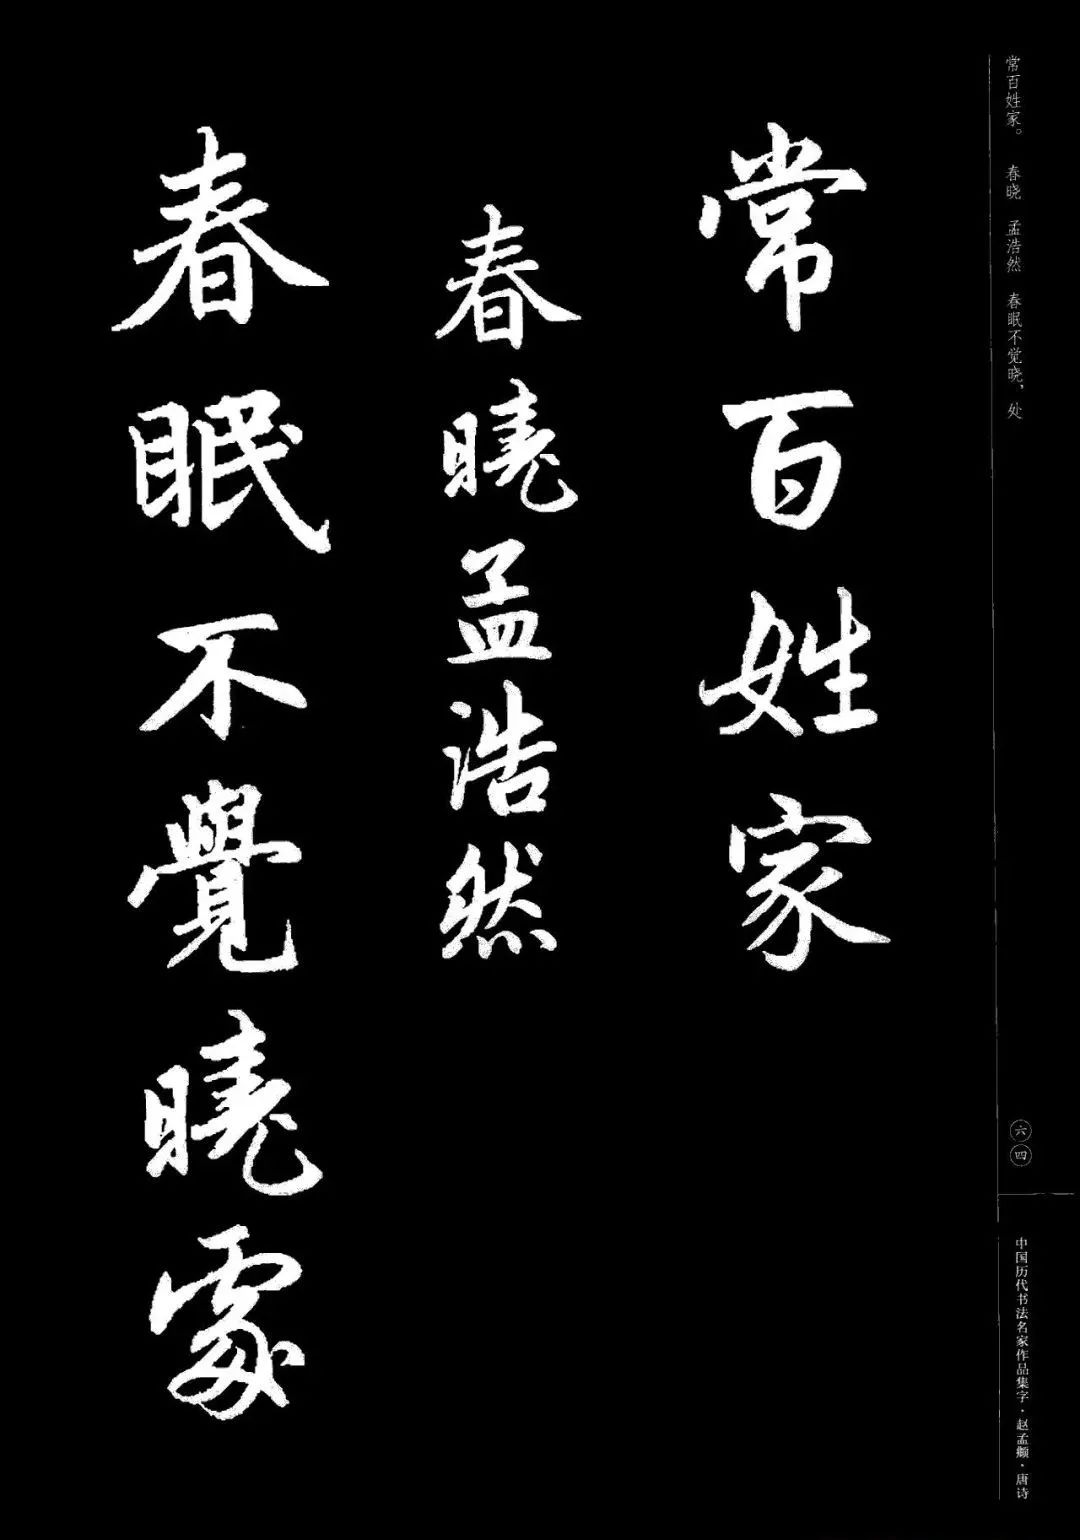 常百姓家。　春晓　孟浩然　春眠不觉晓，处
常百姓家
春曉孟浩然
春眠不覺曉處
六四
中国历代书法名家作品集字·赵孟頫·唐诗